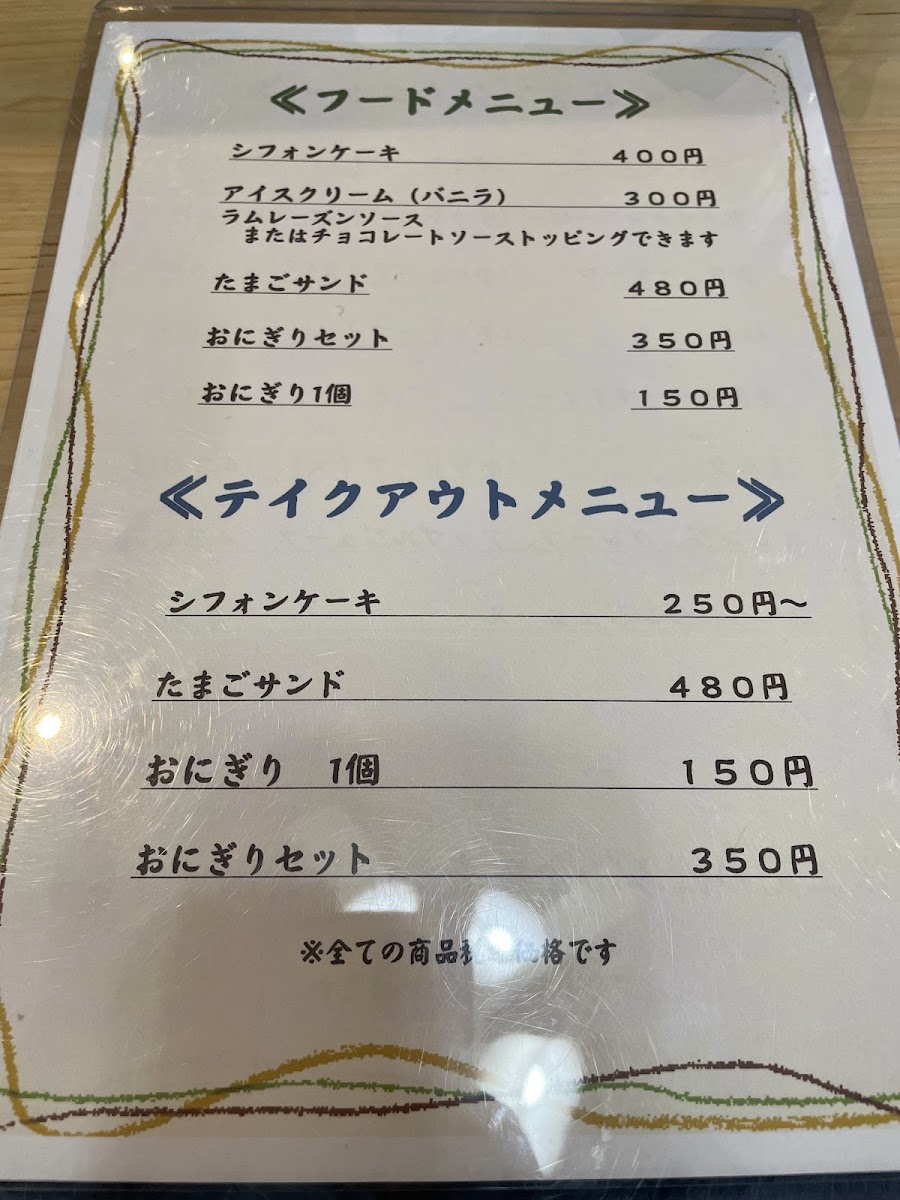 ≪フードメニュー≫
シフォンケーキ 400円
アイスクリーム（バニラ） 300円
ラムレーズンソース
またはチョコレートソーストッピングできます
たまごサンド 480円
おにぎりセット 350円
おにぎり1個 150円
≪テイクアウトメニュー≫
シフォンケーキ 250円～
たまごサンド 480円
おにぎり 1個 150円
おにぎりセット 350円
※全ての商品 価格です